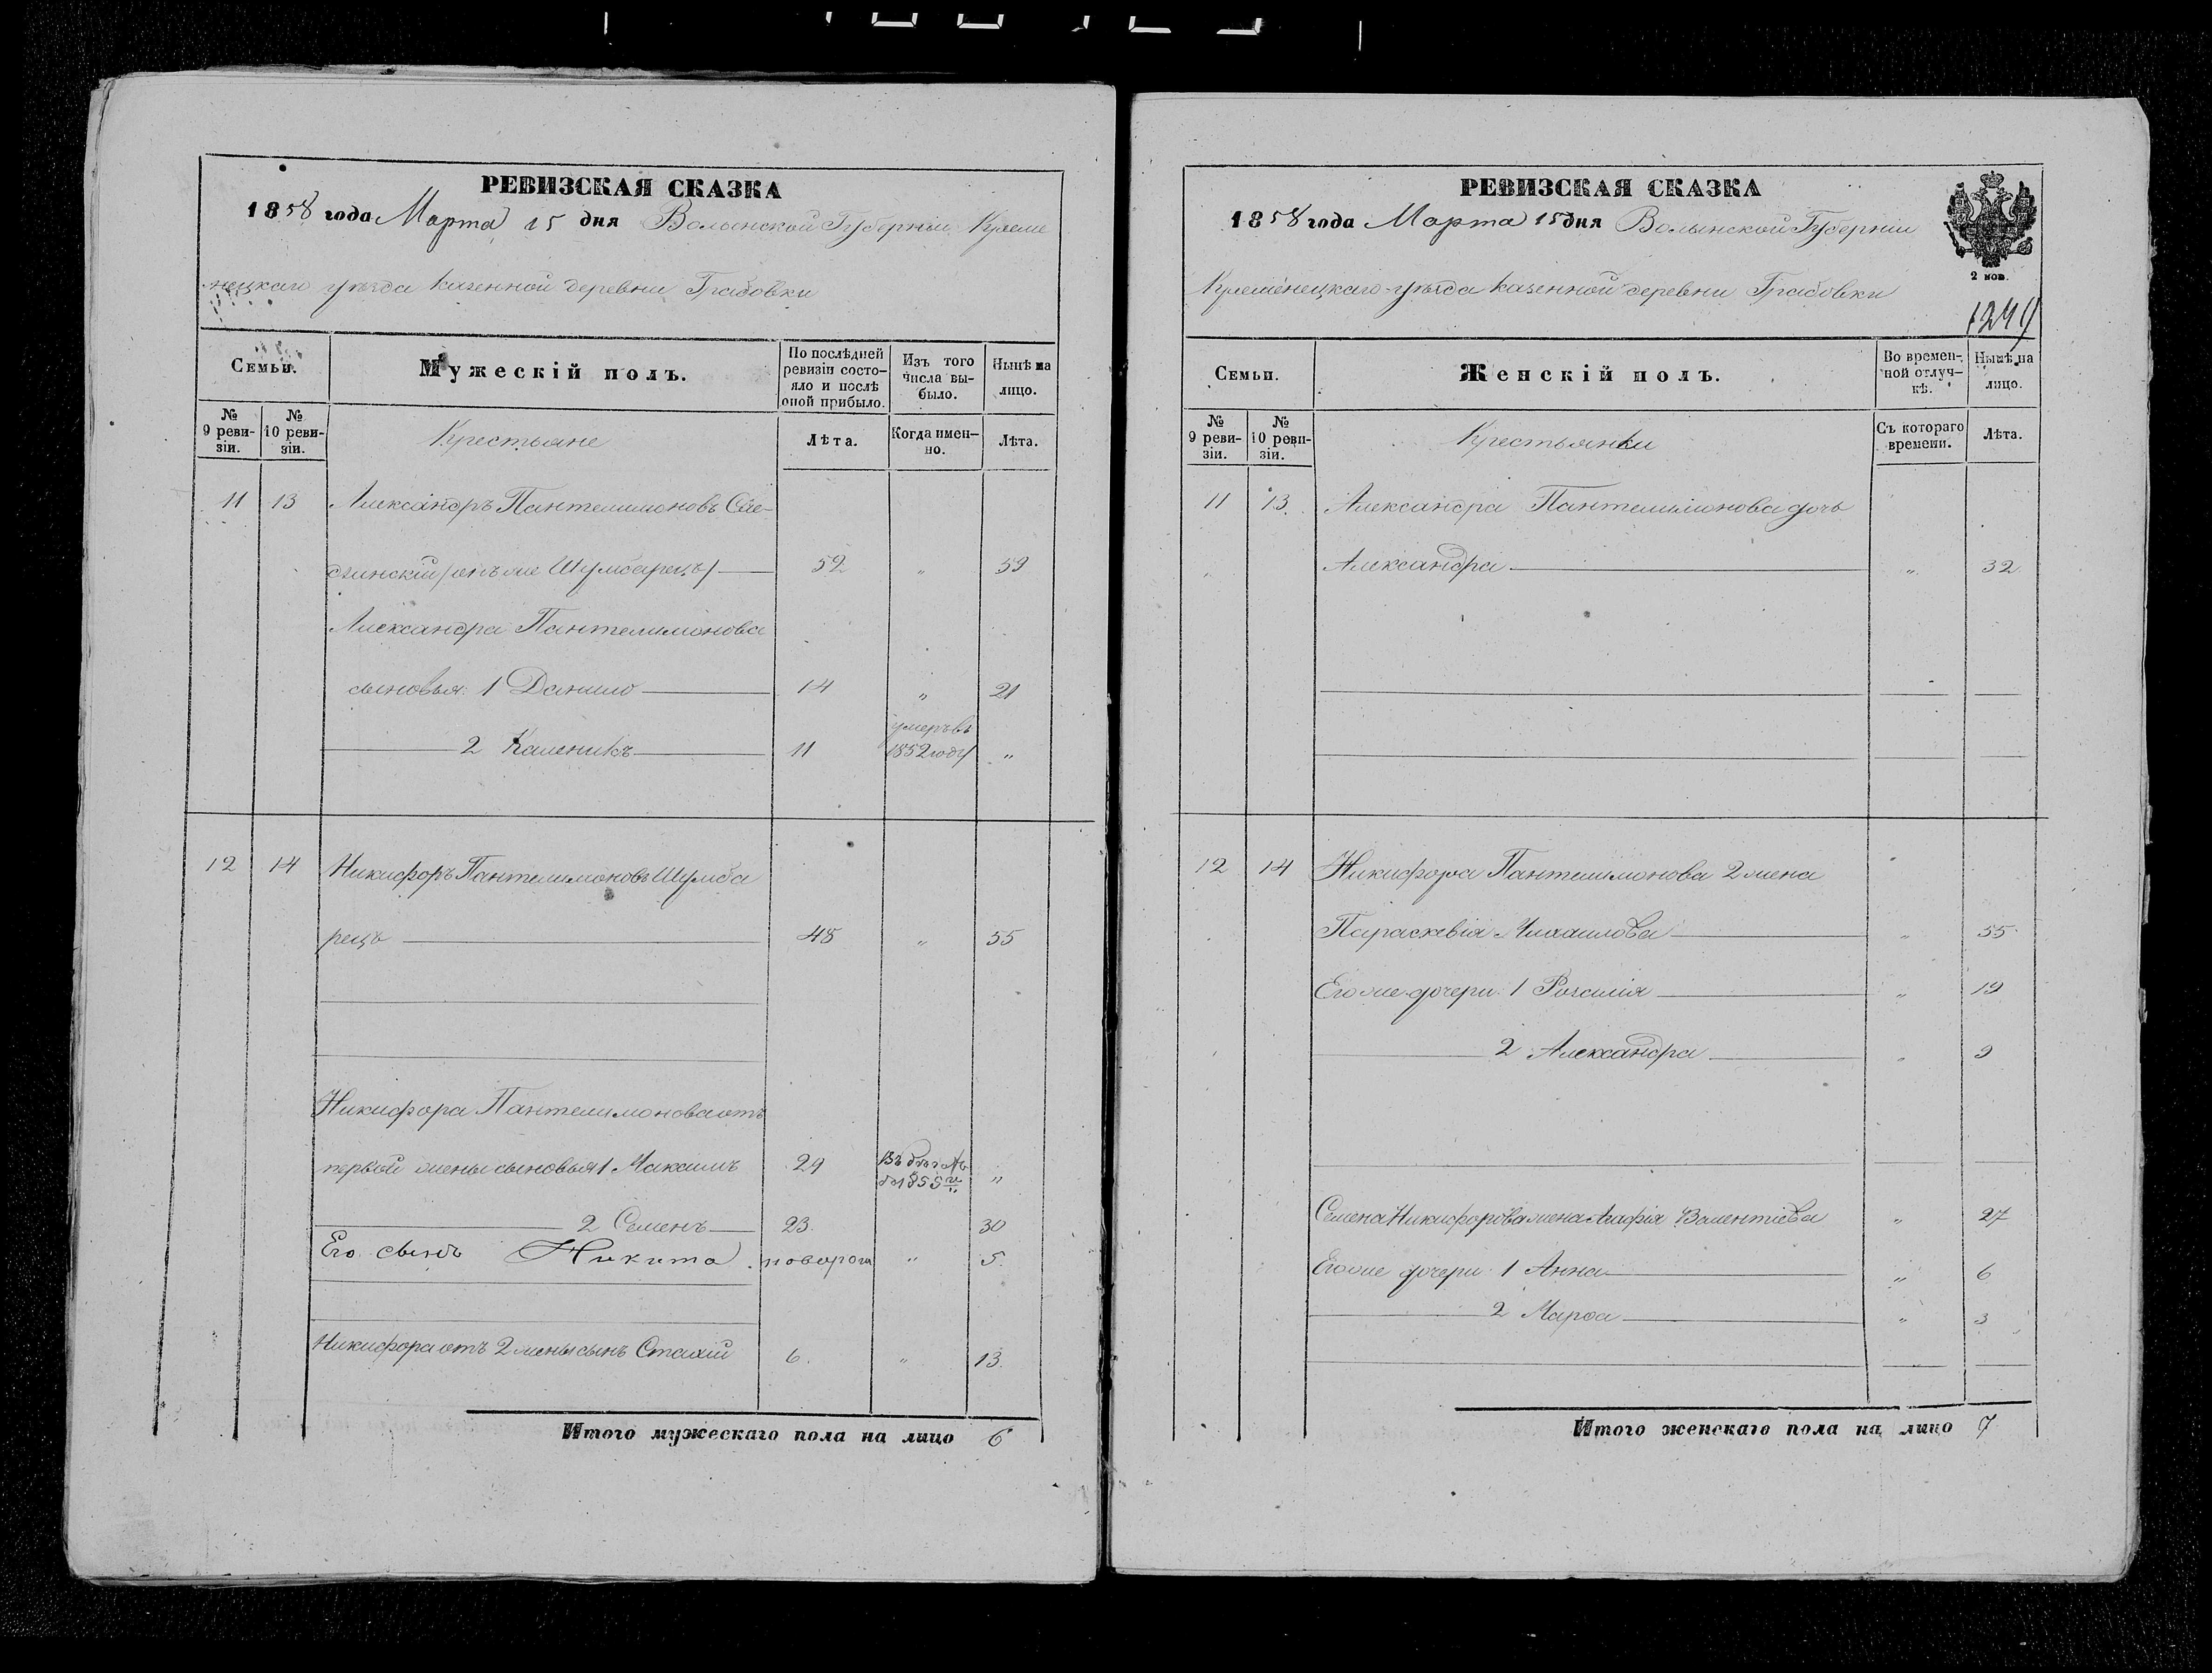 РЕВИЗСКАЯ СКАЗКА
1858 года Марта 15 дня Волынской Губерніи Креме
нецкаго уѣзда казенной деревни Грабовки
Семьи.
Мужескій полъ.
По послѣдней ревизіи состояло и послѣ оной прибыло.
Изъ того числа выбыло.
Нынѣ на лицо.
№ 9 ревизіи.
№ 10 ревизіи.
Крестьяне
Лѣта.
Когда именно.
Лѣта.
11 13 Александръ Пантелимоновъ
Шумбарецъ/ 52 " 59
Александра Пантелимонова
сыновья: 1 Данило 14 " 21
2 Каленикъ 11 умеръ въ 1852 году "
12 14 Никифоръ Пантелимоновъ Шумба
рецъ 48 " 55
Никифора Пантелимонова отъ
первой жены сыновья 1 Максимъ 29 "
2 Семенъ 23 30
Его сынъ Никита новорож " 5
Никифора отъ 2 жены сынъ Стахій 6 " 13
Итого мужескаго пола на лицо 6
РЕВИЗСКАЯ СКАЗКА
1858 года Марта 15 дня Волынской Губерніи
2 коп.
Кременецкаго уѣзда казенной деревни Грабовки
Семьи.
Женскій полъ.
Во временной отлучкѣ.
Нынѣ на лицо.
№ 9 ревизіи.
№ 10 ревизіи.
Крестьянки
Съ котораго времени.
Лѣта.
11 13 Александра Пантелимонова дочь
Александра " 32
12 14 Никифора Пантелимонова 2 жена
Параскевія Михаилова " 55
Его же дочери 1 Розалія " 19
2 Александра " 9
Семена Никифорова жена Агафія Валентіева " 27
Его же дочери 1 Анна " 6
2 Марѳа " 3
Итого женскаго пола на лицо 7